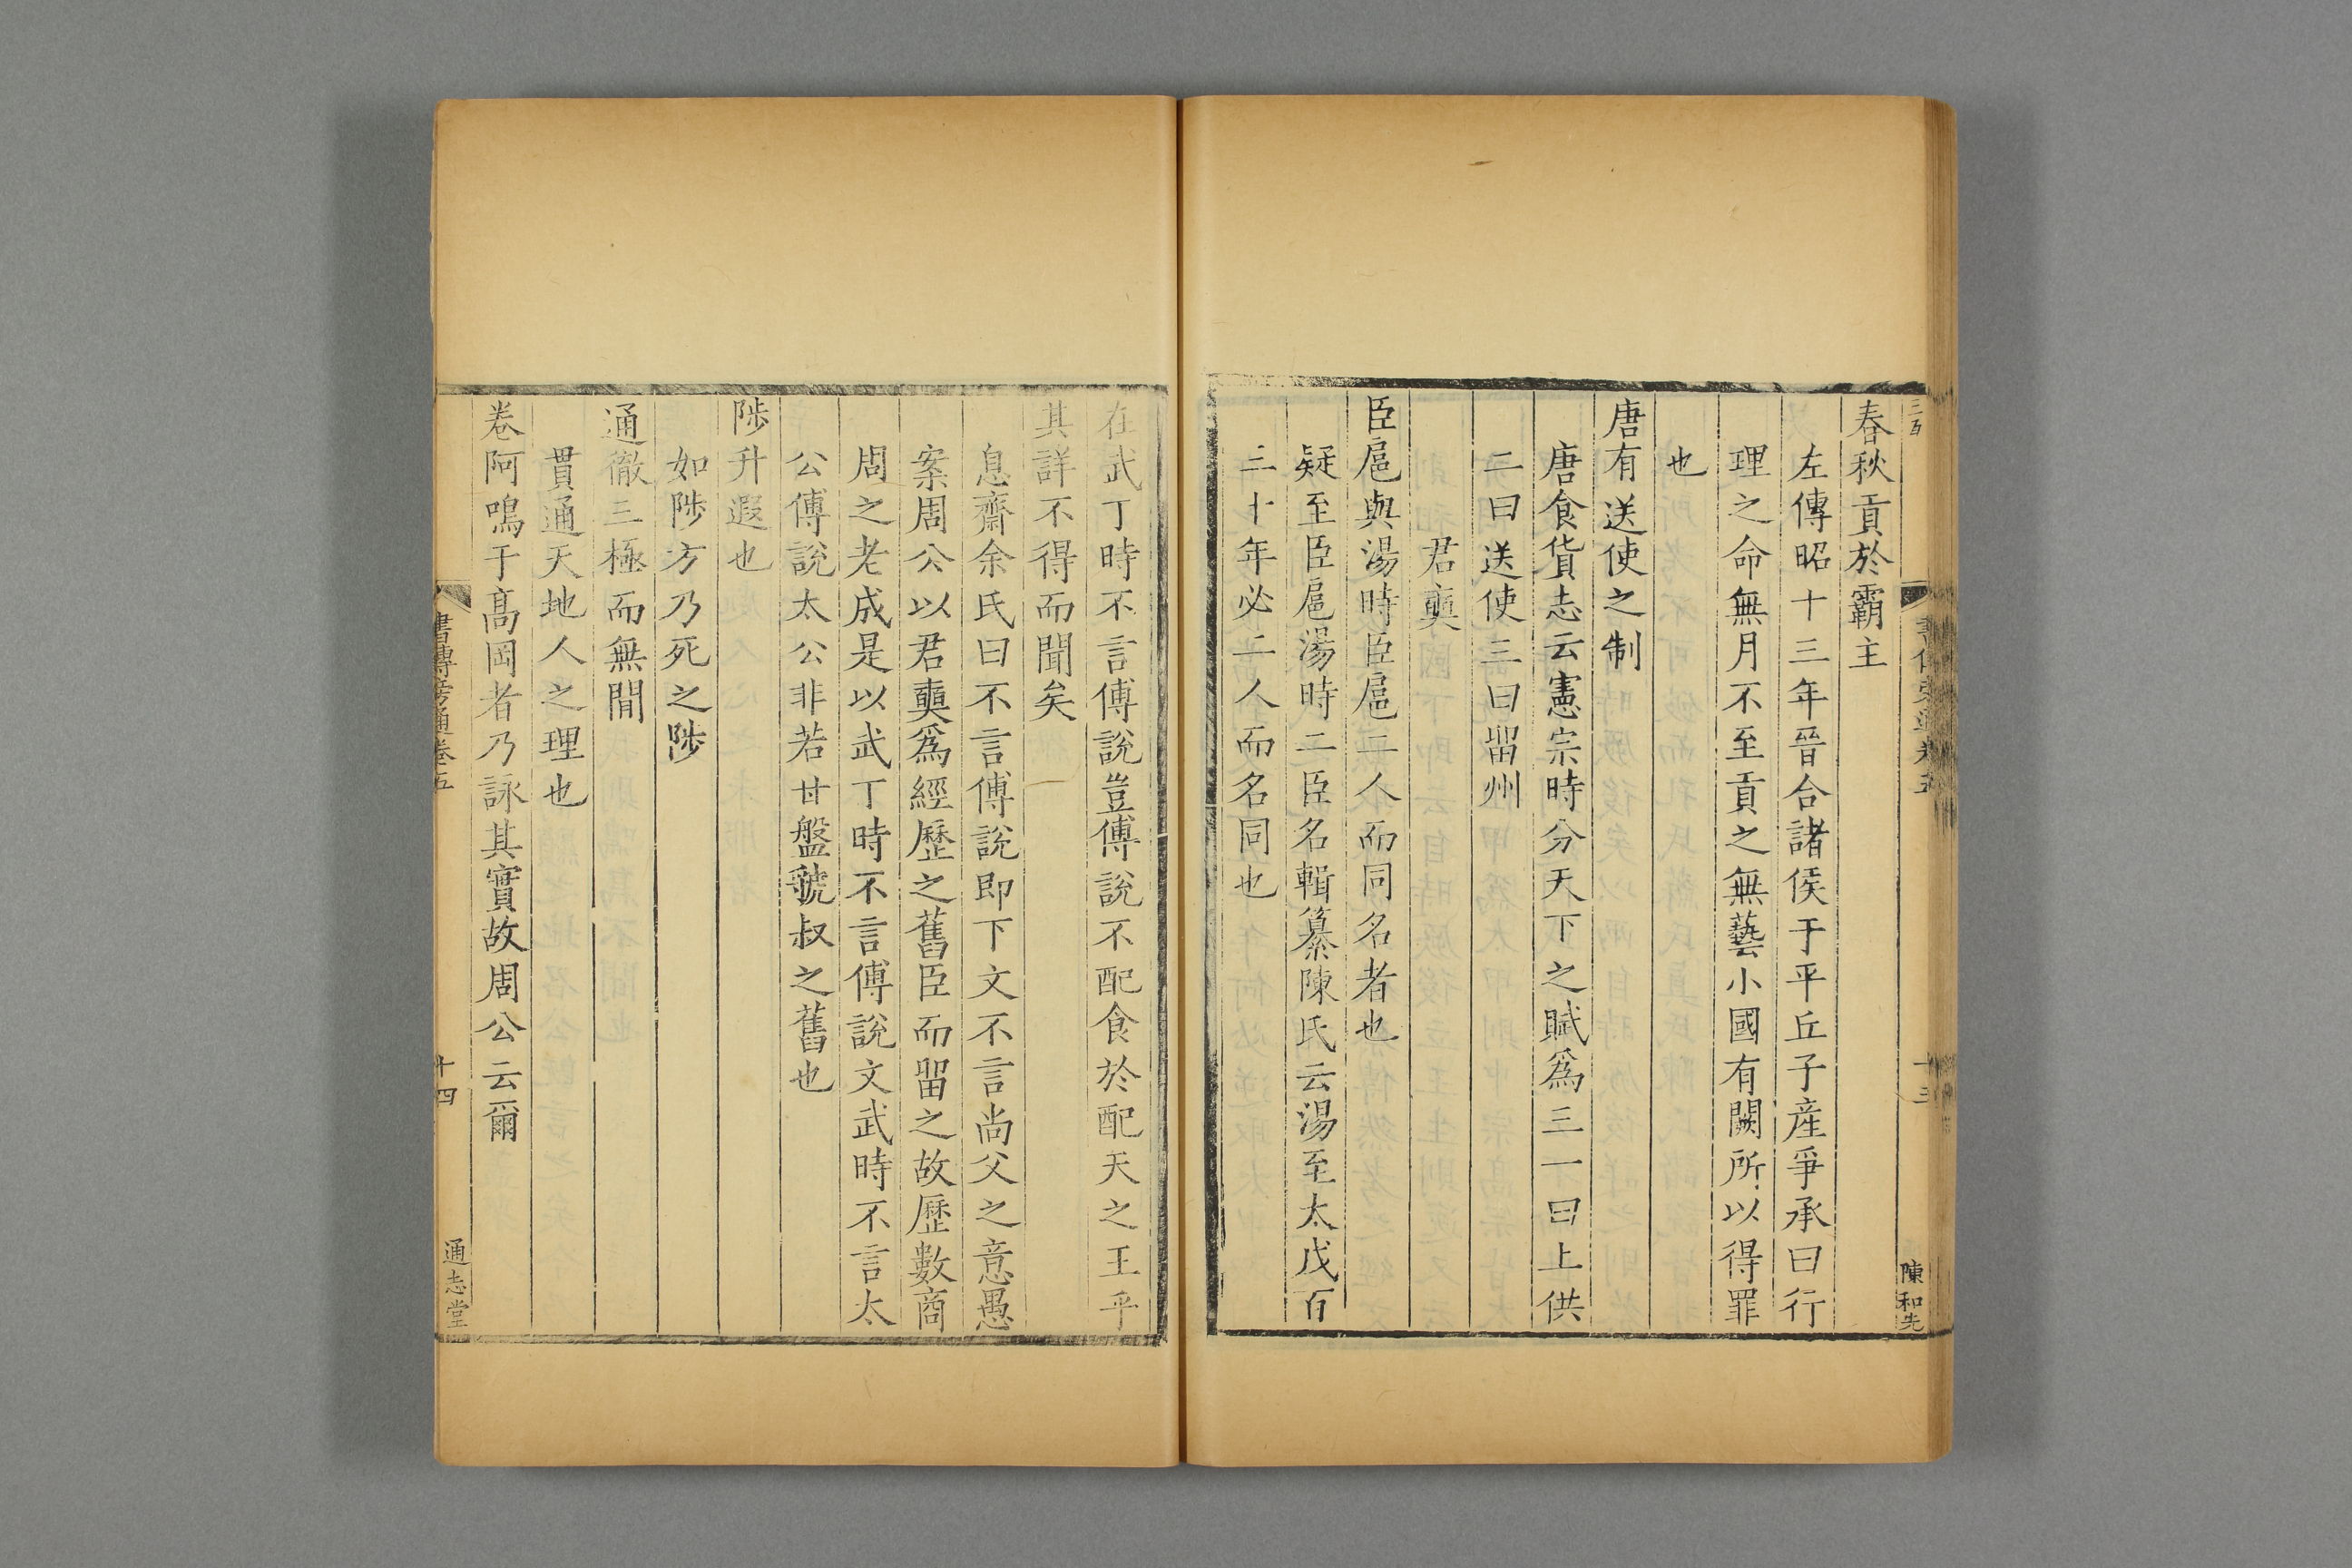 春秋貢於霸主
左傳昭十三年晉合諸侯于平丘子産爭承曰行
理之命無月不至貢之無藝小國有闕所以得罪
也
唐有送使之制
唐食貨志云憲宗時分天下之賦爲三一曰上供
二曰送使三曰留州
君奭
臣扈與湯時臣扈二人而同名者也
疑至臣扈湯時二臣名輯纂陳氏云湯至太戊百
三十年必二人而名同也
陳和先
在武丁時不言傅說豈傅說不配食於配天之王乎
其詳不得而聞矣
息齋余氏曰不言傅說即下文不言尚父之意愚
案周公以君奭爲經歷之舊臣而留之故歷數商
周之老成是以武丁時不言傅說文武時不言太
公傅說太公非若甘盤虢叔之舊也
陟升遐也
如陟方乃死之陟
通徹三極而無間
貫通天地人之理也
卷阿鳴于高岡者乃詠其實故周公云爾
書傳旁通卷五
十四
通志堂